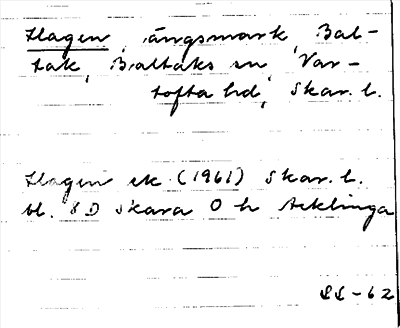 Hagen, ängsmark, Bal-
tak, Baltaks sn, Var-
tofta hd, Skar. l.
Hagen ek (1961) Skar. l.
bl. 8D Skara O h Acklinga
LL-62